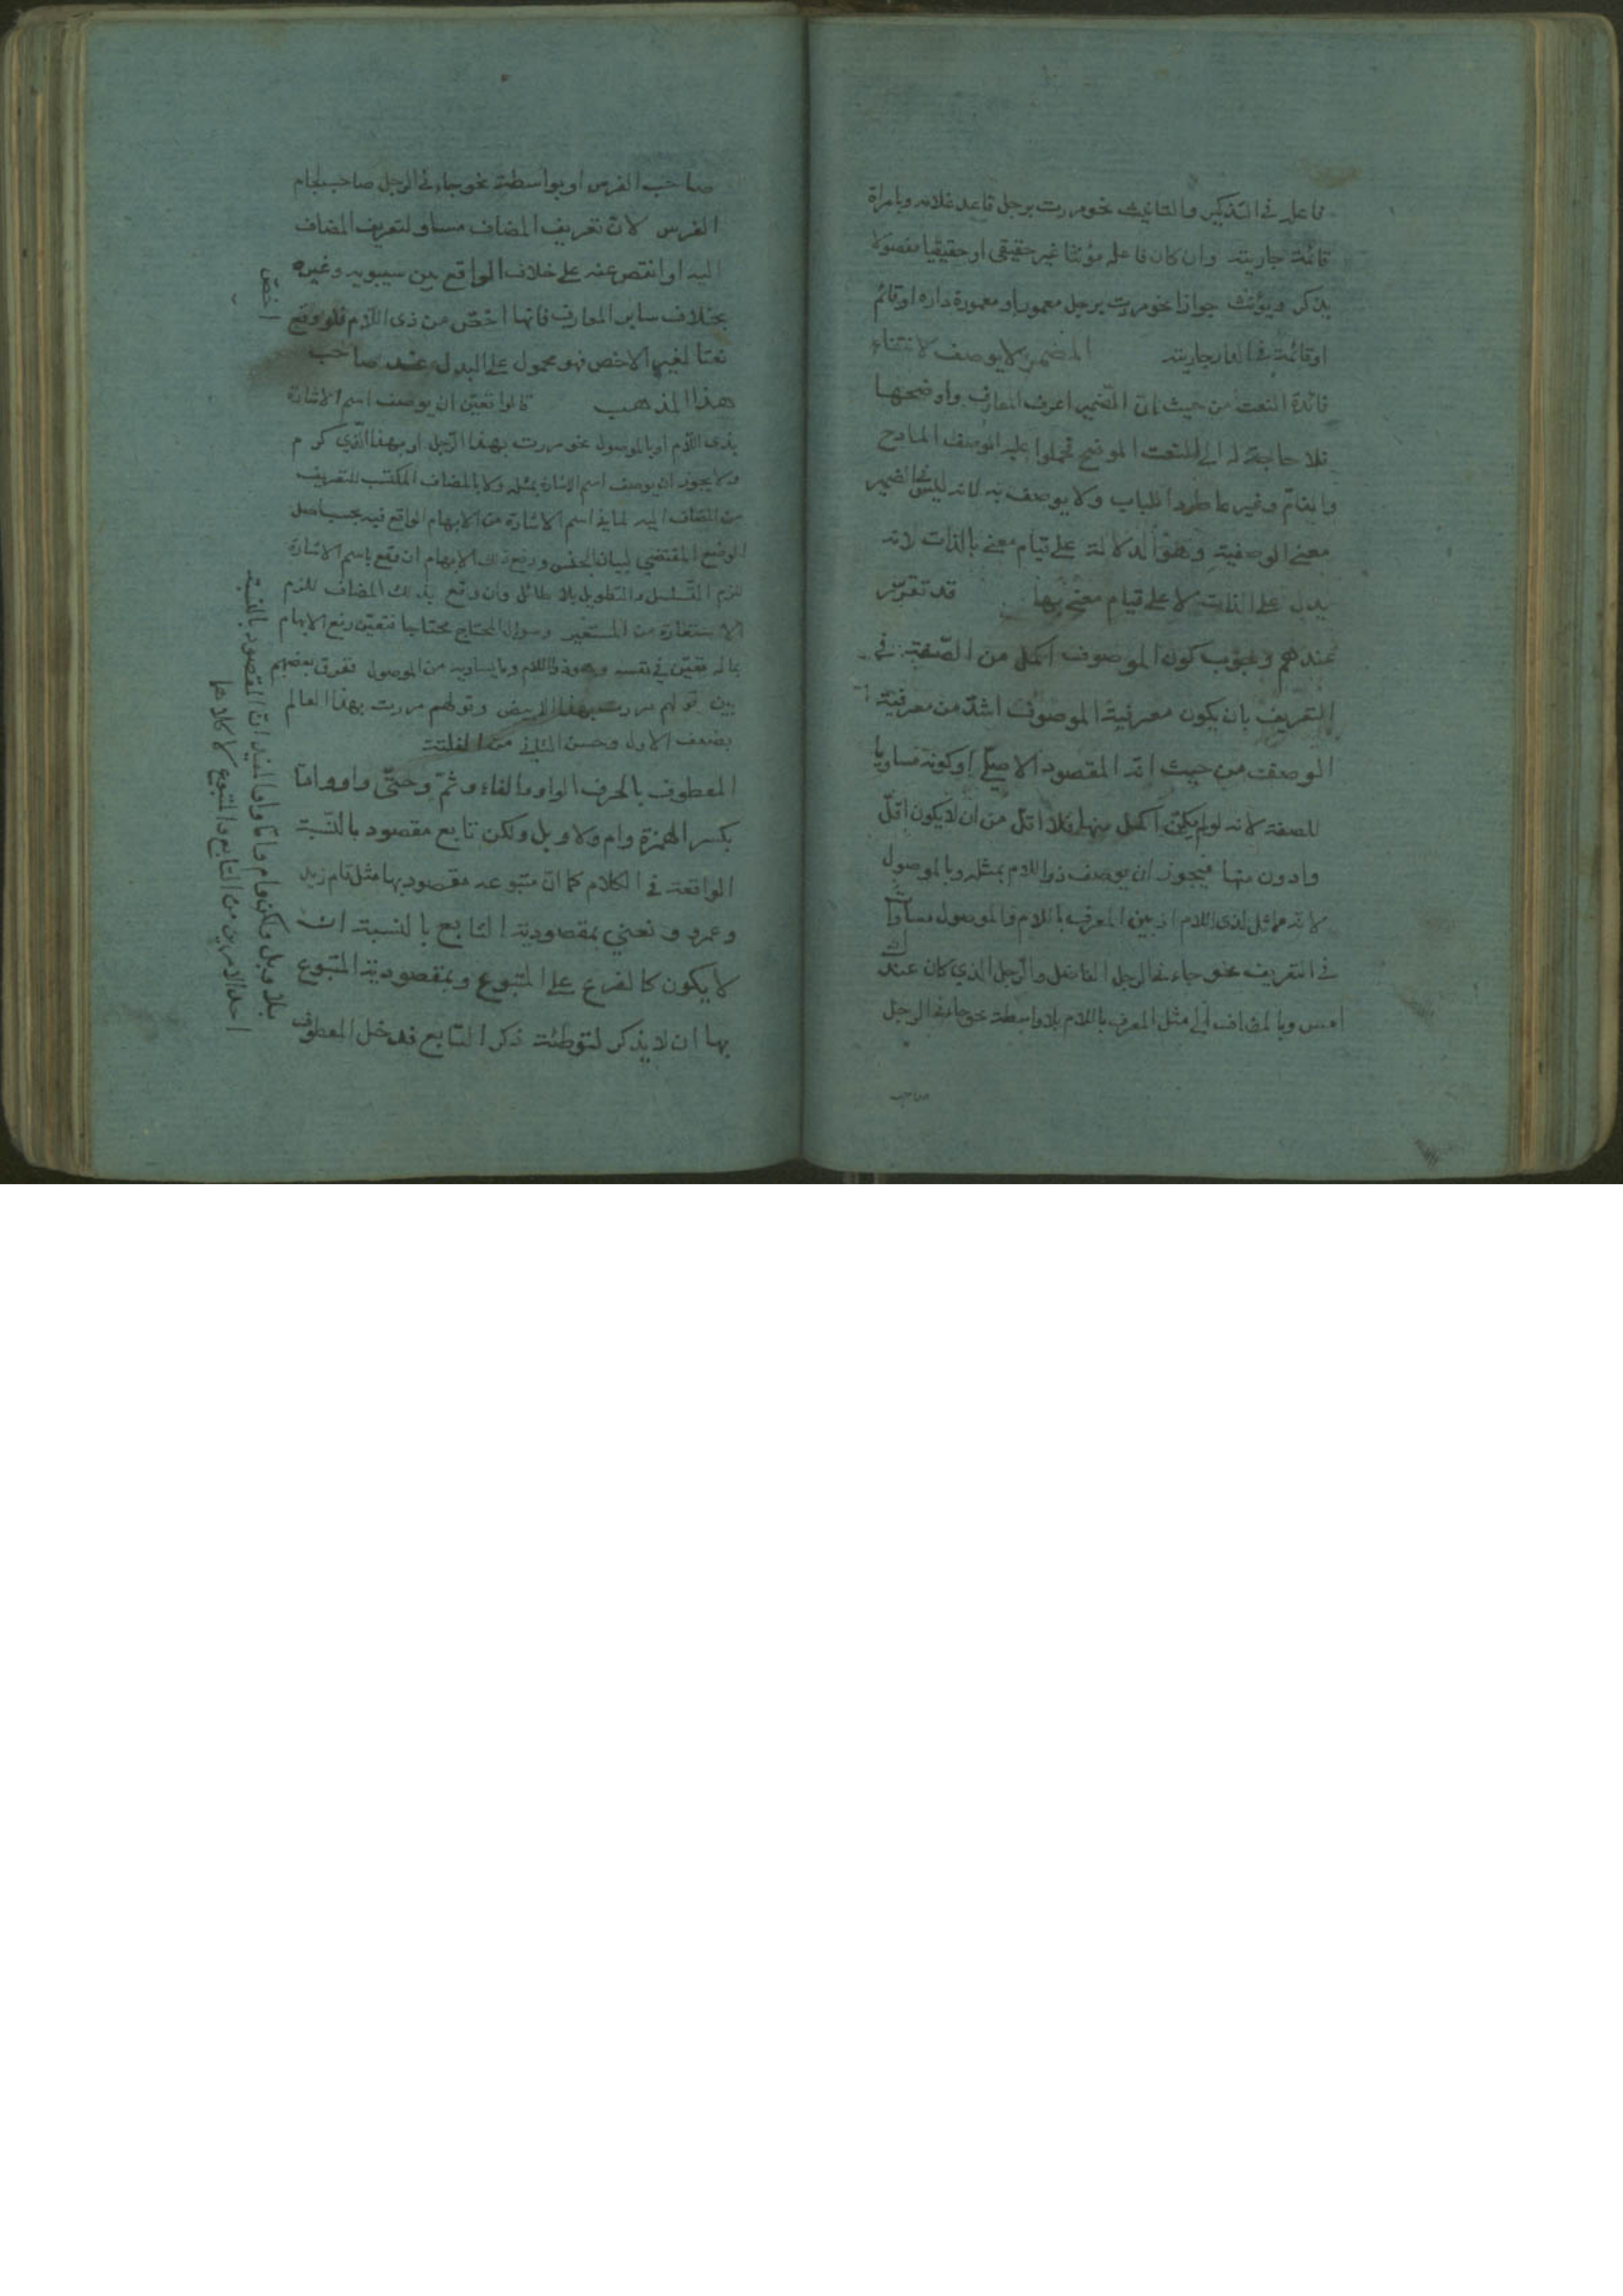 فاعله في التذكير والتانيث نحو مررت برجل قاعد غلامه وبامراة
قائمة جاريته وان كان فاعله مؤنثا غير حقيقي او حقيقيا مفصولا
يذكر ويؤنث جوازا نحو مررت برجل معمور او معمورة داره او قائم
او قائمة في الدار جاريته المضمر لا يوصف لانتفاء
فائدة النعت من حيث ان الضمير اعرف المعارف واوضحها
فلا حاجة له الى النعت الموضح تحملوا عليه الوصف المادح
والذام وغيرهما طردا للباب ولا يوصف به لانه ليس في الضمير
معنى الوصفية وهو الدلالة على قيام معنى بالذات لانه
يدل على الذات لا على قيام معنى بها قد تقرر
عندهم وجوب كون الموصوف اكمل من الصفة في
التعريف بان يكون معرفية الموصوف اشد من معرفية
الوصف من حيث انه المقصود الاصلي او كونه مساويا
للصفة لانه لو لم يكن اكمل منها فلا اقل من ان لا يكون اقل
وادون منها فيجوز ان يوصف ذو اللام بمثله وبالموصول
لانه مماثل لذي اللام اذ بين المعرف باللام والموصول مساواة
في التعريف نحو جاءني الرجل الفاضل والرجل الذي كان عندك
امس وبالمضاف الى مثل المعرف باللام بلا واسطة نحو جاءني الرجل
صاحب الفرس او بواسطة نحو جاءني الرجل صاحب لجام
الفرس لان تعريف المضاف مساو لتعريف المضاف
اليه او انقص عنه على خلاف الواقع بين سيبويه وغيره
بخلاف ساير المعارف فانها اخص من ذي اللام فلو وقع
نعتا لغير الاخص فهو محمول على البدل عند صاحب
هذا المذهب قالوا تعين ان يوصف اسم الاشارة
بذي اللام او بالموصول نحو مررت بهذا الرجل او بهذا الذي كرم
ولا يجوز ان يوصف اسم الاشارة بمثله ولا بالمضاف المكتسب للتعريف
من المضاف اليه لما في اسم الاشارة من الابهام الواقع فيه بحسب اصل
الوضع المقتضي لبيان الجنس ورفع ذلك الابهام ان وقع باسم الاشارة
لزم التسلسل والتطويل بلا طائل وان وقع بذلك المضاف للزم
الاستعارة من المستعير وسوال المحتاج محتاجا فتعين رفع الابهام
بما له تعين في نفسه وهو ذو اللام وما يساويه من الموصول ففرق بعضهم
بين قولهم مررت بهذا الابيض وقولهم مررت بهذا العالم
بضعف الاول وحسن الثاني من
المعطوف بالحرف الواو والفاء وثم وحتى واو واما
بكسر الهمزة وام ولا وبل ولكن تابع مقصود بالنسبة
الواقعة في الكلام كما ان متبوعه مقصود بها مثل قام زيد
وعمرو ونعني بمقصودية التابع بالنسبة ان
لا يكون كالفرع على المتبوع وبمقصودية المتبوع
بها ان لا يذكر لتوطئة ذكر التابع فدخل المعطوف
اخص
بلا وبل ولكن وام واما واو المفيد ان المقصود بالنسبة
احد الامرين من التابع والمتبوع لا كلاهما